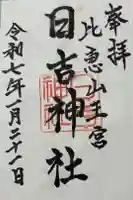 奉拝
比恵山王宮
日吉神社
令和七年一月二十一日